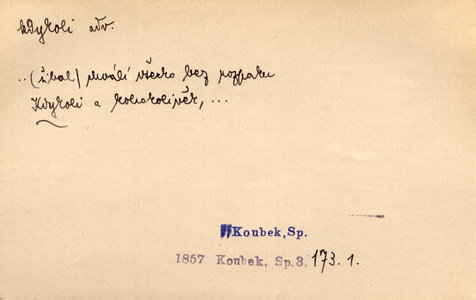 kdykoli adv.
..(žval) chválí všecko bez rozpaku
Kdykoli a kohokolivěk, ...
Koubek, Sp.
1857 Koubek, Sp.3, 173. 1.